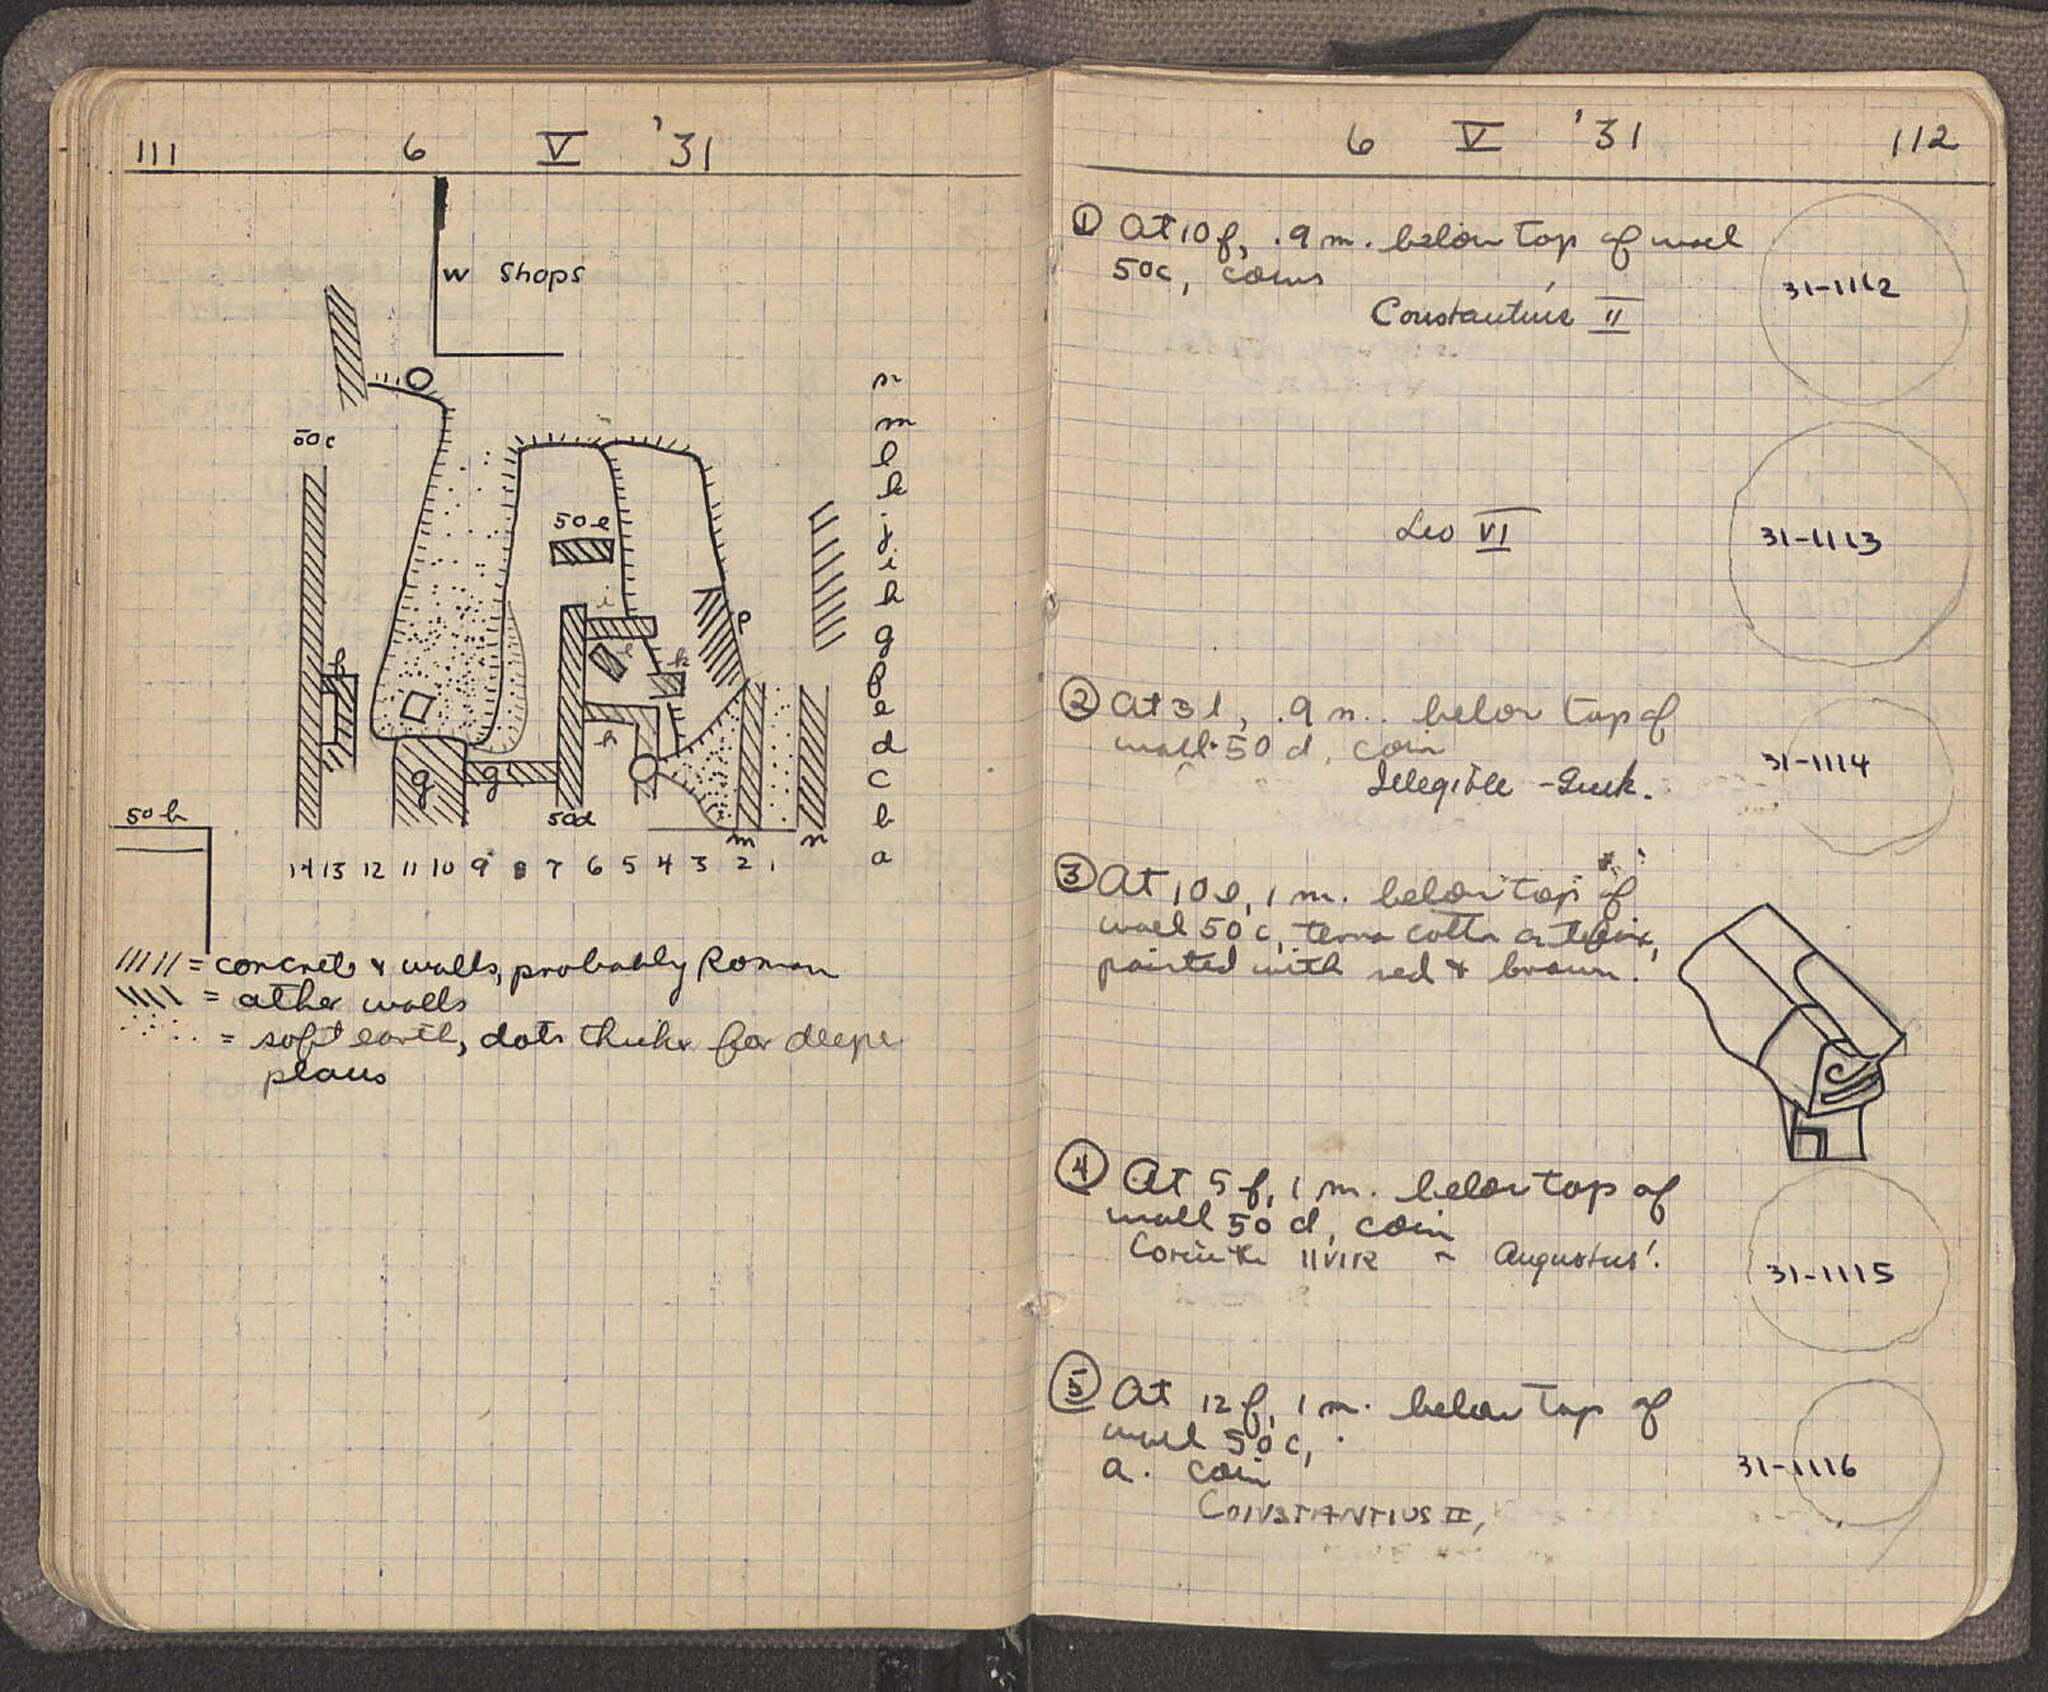 111 6 V '31
W Shops
n
m
50c
l
k
50e
j
i
h
i
p
g
l
k
h
f
e
h
d
g g
c
50b
50d
b
m n
14 13 12 11 10 9 8 7 6 5 4 3 2 1
a
///// = concrete & walls, probably Roman
\\\\ = other walls
= soft earth, dots thicker for deeper
places
6 V '31 112
① At 10f, .9 m. below top of wall
50c, coins
31-1112
Constantius II
Leo VI
31-1113
② At 3l, .9 m. below top of
wall 50d, coin
31-1114
Illegible - Greek.
③ At 10e, 1 m. below top of
wall 50c, terra cotta antefix,
painted with red & brown.
④ At 5f, 1 m. below top of
wall 50d, coin
Corinth IIVIR ~ Augustus.
31-1115
⑤ At 12f, 1 m. below top of
wall 50c,
a. coin
31-1116
CONSTANTIUS II,